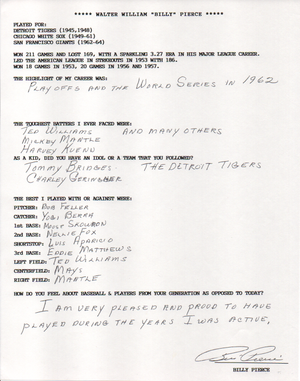 ***** WALTER WILLIAM "BILLY" PIERCE *****
PLAYED FOR:
DETROIT TIGERS (1945,1948)
CHICAGO WHITE SOX (1949-61)
SAN FRANCISCO GIANTS (1962-64)
WON 211 GAMES AND LOST 169, WITH A SPARKLING 3.27 ERA IN HIS MAJOR LEAGUE CAREER.
LED THE AMERICAN LEAGUE IN STRKEOUTS IN 1953 WITH 186.
WON 18 GAMES IN 1953, 20 GAMES IN 1956 AND 1957.
THE HIGHLIGHT OF MY CAREER WAS:
PLAYOFFS AND THE WORLD SERIES IN 1962
THE TOUGHEST BATTERS I EVER FACED WERE:
TED WILLIAMS AND MANY OTHERS
MICKEY MANTLE
HARVEY KUENN
AS A KID, DID YOU HAVE AN IDOL OR A TEAM THAT YOU FOLLOWED?
TOMMY BRIDGES THE DETROIT TIGERS
CHARLEY GERINGER
THE BEST I PLAYED WITH OR AGAINST WERE:
PITCHER: BOB FELLER
CATCHER: YOGI BERRA
1st BASE: MOOSE SKOWRON
2nd BASE: NELLIE FOX
SHORTSTOP: LUIS APARICIO
3rd BASE: EDDIE MATTHEWS
LEFT FIELD: TED WILLIAMS
CENTERFIELD: MAYS
RIGHT FIELD: MANTLE
HOW DO YOU FEEL ABOUT BASEBALL & PLAYERS FROM YOUR GENERATION AS OPPOSED TO TODAY?
I AM VERY PLEASED AND PROUD TO HAVE
PLAYED DURING THE YEARS I WAS ACTIVE.
Billy Pierce
BILLY PIERCE